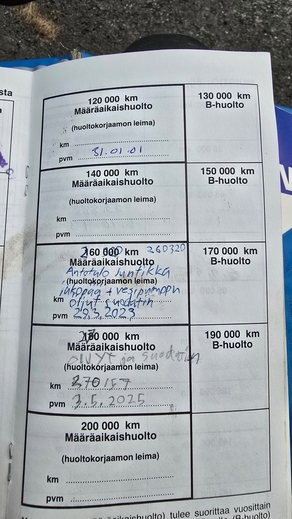 sta
120 000 km
Määräaikaishuolto
(huoltokorjaamon leima)
km
pvm 31.01.01
130 000 km
B-huolto
140 000 km
Määräaikaishuolto
(huoltokorjaamon leima)
km
pvm
150 000 km
B-huolto
260320
160 000 km
Määräaikaishuolto
(huoltokorjaamon leima)
km öljyt suodatin
pvm 29.3.2023
170 000 km
B-huolto
180 000 km
Määräaikaishuolto
ja suodatin
(huoltokorjaamon leima)
km 270157
pvm 3.5.2025
190 000 km
B-huolto
200 000 km
Määräaikaishuolto
(huoltokorjaamon leima)
km
pvm
tulee suorittaa vuosittain